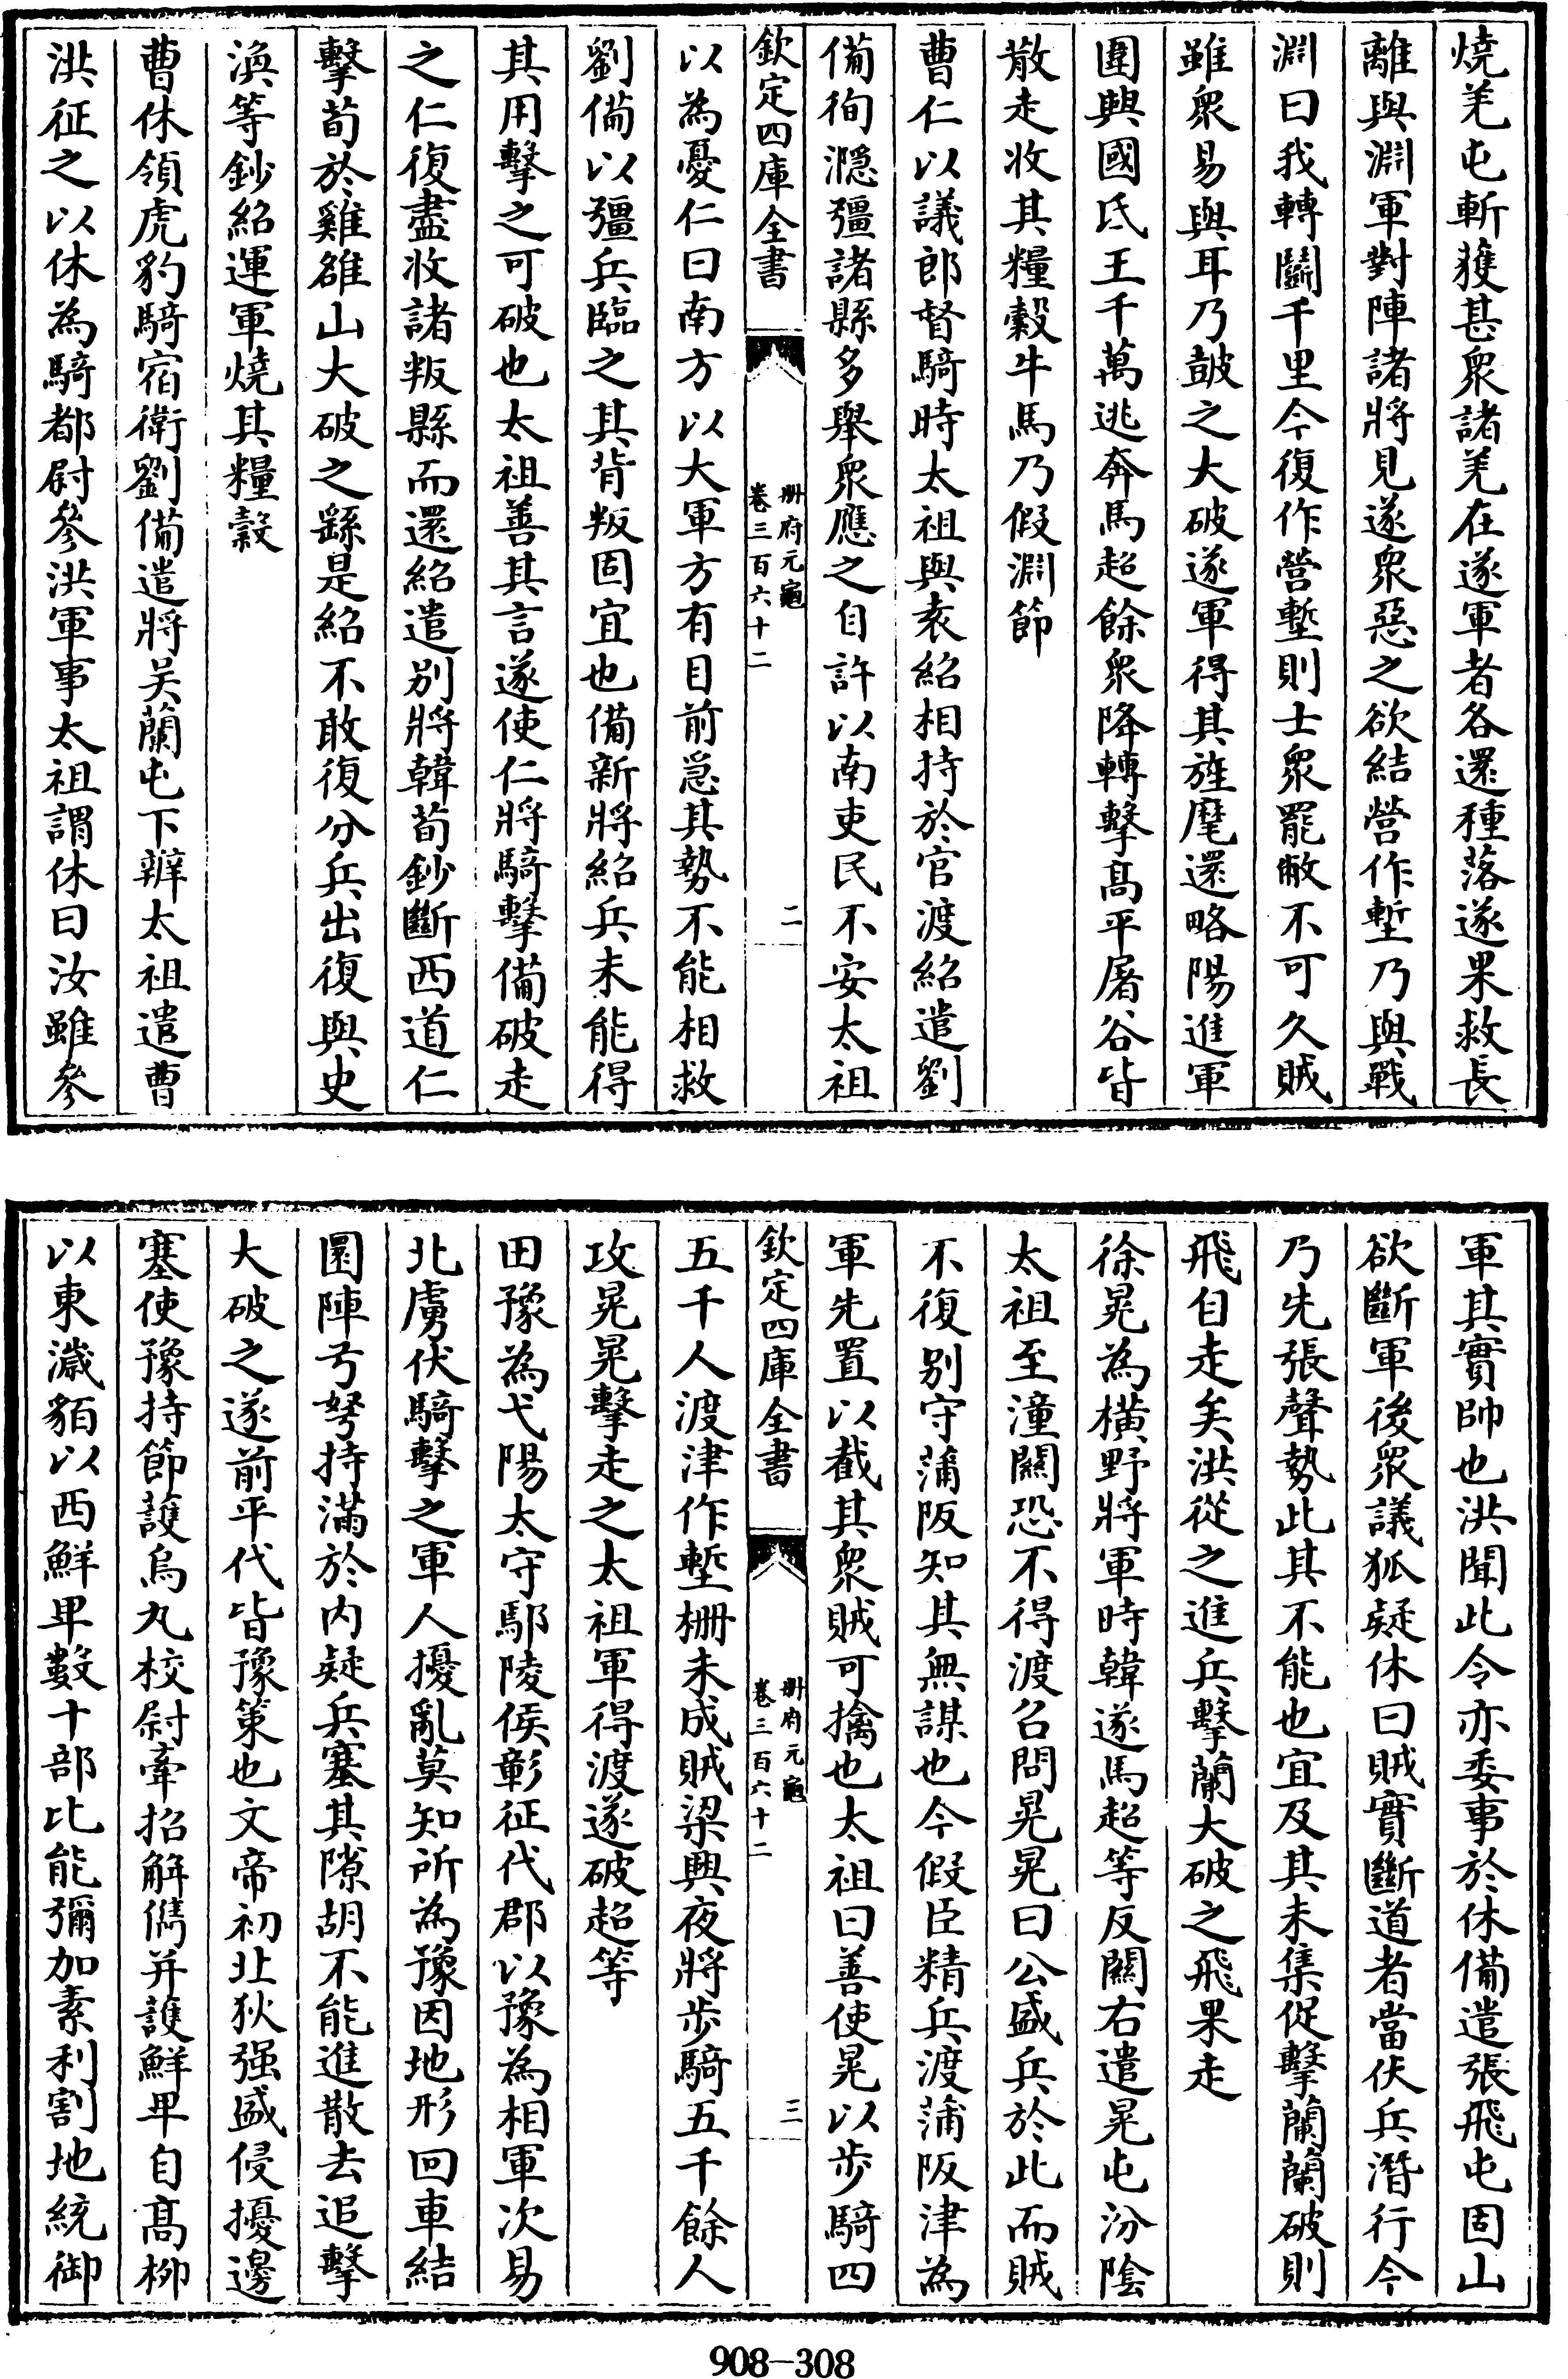 燒羌屯斬獲甚衆諸羌在遂軍者各還種落遂果救長
離與淵軍對陣諸將見遂衆惡之欲結營作塹乃與戰
淵曰我轉鬭千里今復作營塹則士衆罷敝不可久賊
雖衆易與耳乃鼓之大破遂軍得其旌麾還略陽進軍
圍興國氐王千萬逃奔馬超餘衆降轉擊髙平屠谷皆
散走收其糧穀牛馬乃假淵節
曹仁以議郎督騎時太祖與袁紹相持於官渡紹遣劉
備徇㶏彊諸縣多舉衆應之自許以南吏民不安太祖
欽定四庫全書
册府元龜
卷三百六十二
二
以為憂仁曰南方以大軍方有目前急其勢不能相救
劉備以彊兵臨之其背叛固宜也備新將紹兵未能得
其用擊之可破也太祖善其言遂使仁將騎擊備破走
之仁復盡收諸叛縣而還紹遣别將韓荀鈔斷西道仁
擊荀於雞雒山大破之繇是紹不敢復分兵出復與史
渙等鈔紹運軍燒其糧穀
曹休領虎豹騎宿衛劉備遣將吴蘭屯下辨太祖遣曹
洪征之以休為騎都尉參洪軍事太祖謂休曰汝雖參
軍其實帥也洪聞此令亦委事於休備遣張飛屯固山
欲斷軍後衆議狐疑休曰賊實斷道者當伏兵潛行今
乃先張聲勢此其不能也宜及其未集促擊蘭蘭破則
飛自走矣洪從之進兵擊蘭大破之飛果走
徐晃為橫野將軍時韓遂馬超等反關右遣晃屯汾隂
太祖至潼關恐不得渡召問晃晃曰公盛兵於此而賊
不復别守蒲阪知其無謀也今假臣精兵渡蒲阪津為
軍先置以截其衆賊可擒也太祖曰善使晃以步騎四
欽定四庫全書
册府元龜
卷三百六十二
三
五千人渡津作塹栅未成賊梁興夜將步騎五千餘人
攻晃晃擊走之太祖軍得渡遂破超等
田豫為弋陽太守鄢陵侯彰征代郡以豫為相軍次易
北虜伏騎擊之軍人擾亂莫知所為豫因地形回車結
圜陣弓弩持滿於内疑兵塞其隙胡不能進散去追擊
大破之遂前平代皆豫策也文帝初北狄强盛侵擾邊
塞使豫持節護烏丸校尉牽招解儁并護鮮卑自髙柳
以東濊貊以西鮮卑數十部比能彌加素利割地統御
908-308